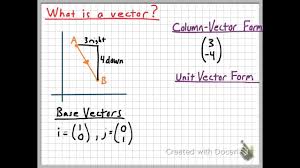 What is a vector?
A 3 right
4 down
B
Column-Vector Form
( 3 )
( -4 )
Unit Vector Form
Base Vectors
i = ( 1 ) , j = ( 0 )
( 0 ) ( 1 )
Created with Doceri